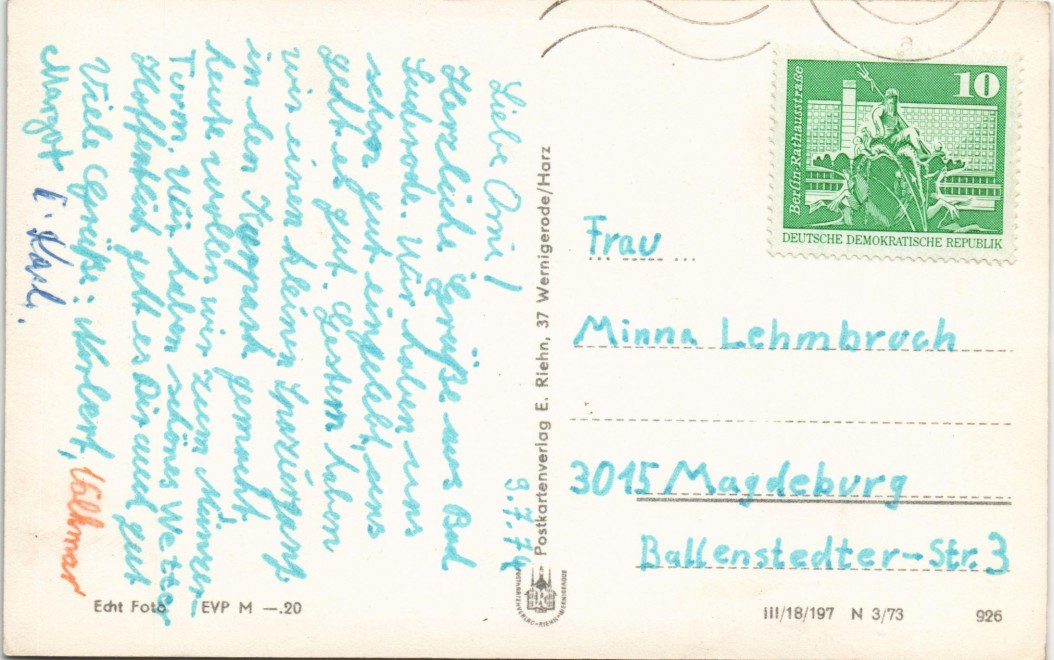 9.7.74
Liebe Omi!
Herzliche Grüße aus Bad
Suderode. Wir haben uns
schon gut eingelebt, uns
geht es gut. Gestern haben
wir einen kleinen Spaziergang
in den Kurpark gemacht,
heute wollen wir zum
Turm. Wir haben schönes Wetter
Hoffentlich geht es Dir auch gut
Viele Grüße: Norbert, Volkmar
Margot E. Karl.
Echt Foto EVP M —.20
Postkartenverlag E. Riehn, 37 Wernigerode/Harz
POSTKARTENVERLAG-RIEHN-WERNIGERODE
10
Berlin-Rathausstraße
DEUTSCHE DEMOKRATISCHE REPUBLIK
Frau
Minna Lehmbruch
3015 Magdeburg
Ballenstedter-Str. 3
III/18/197 N 3/73 926